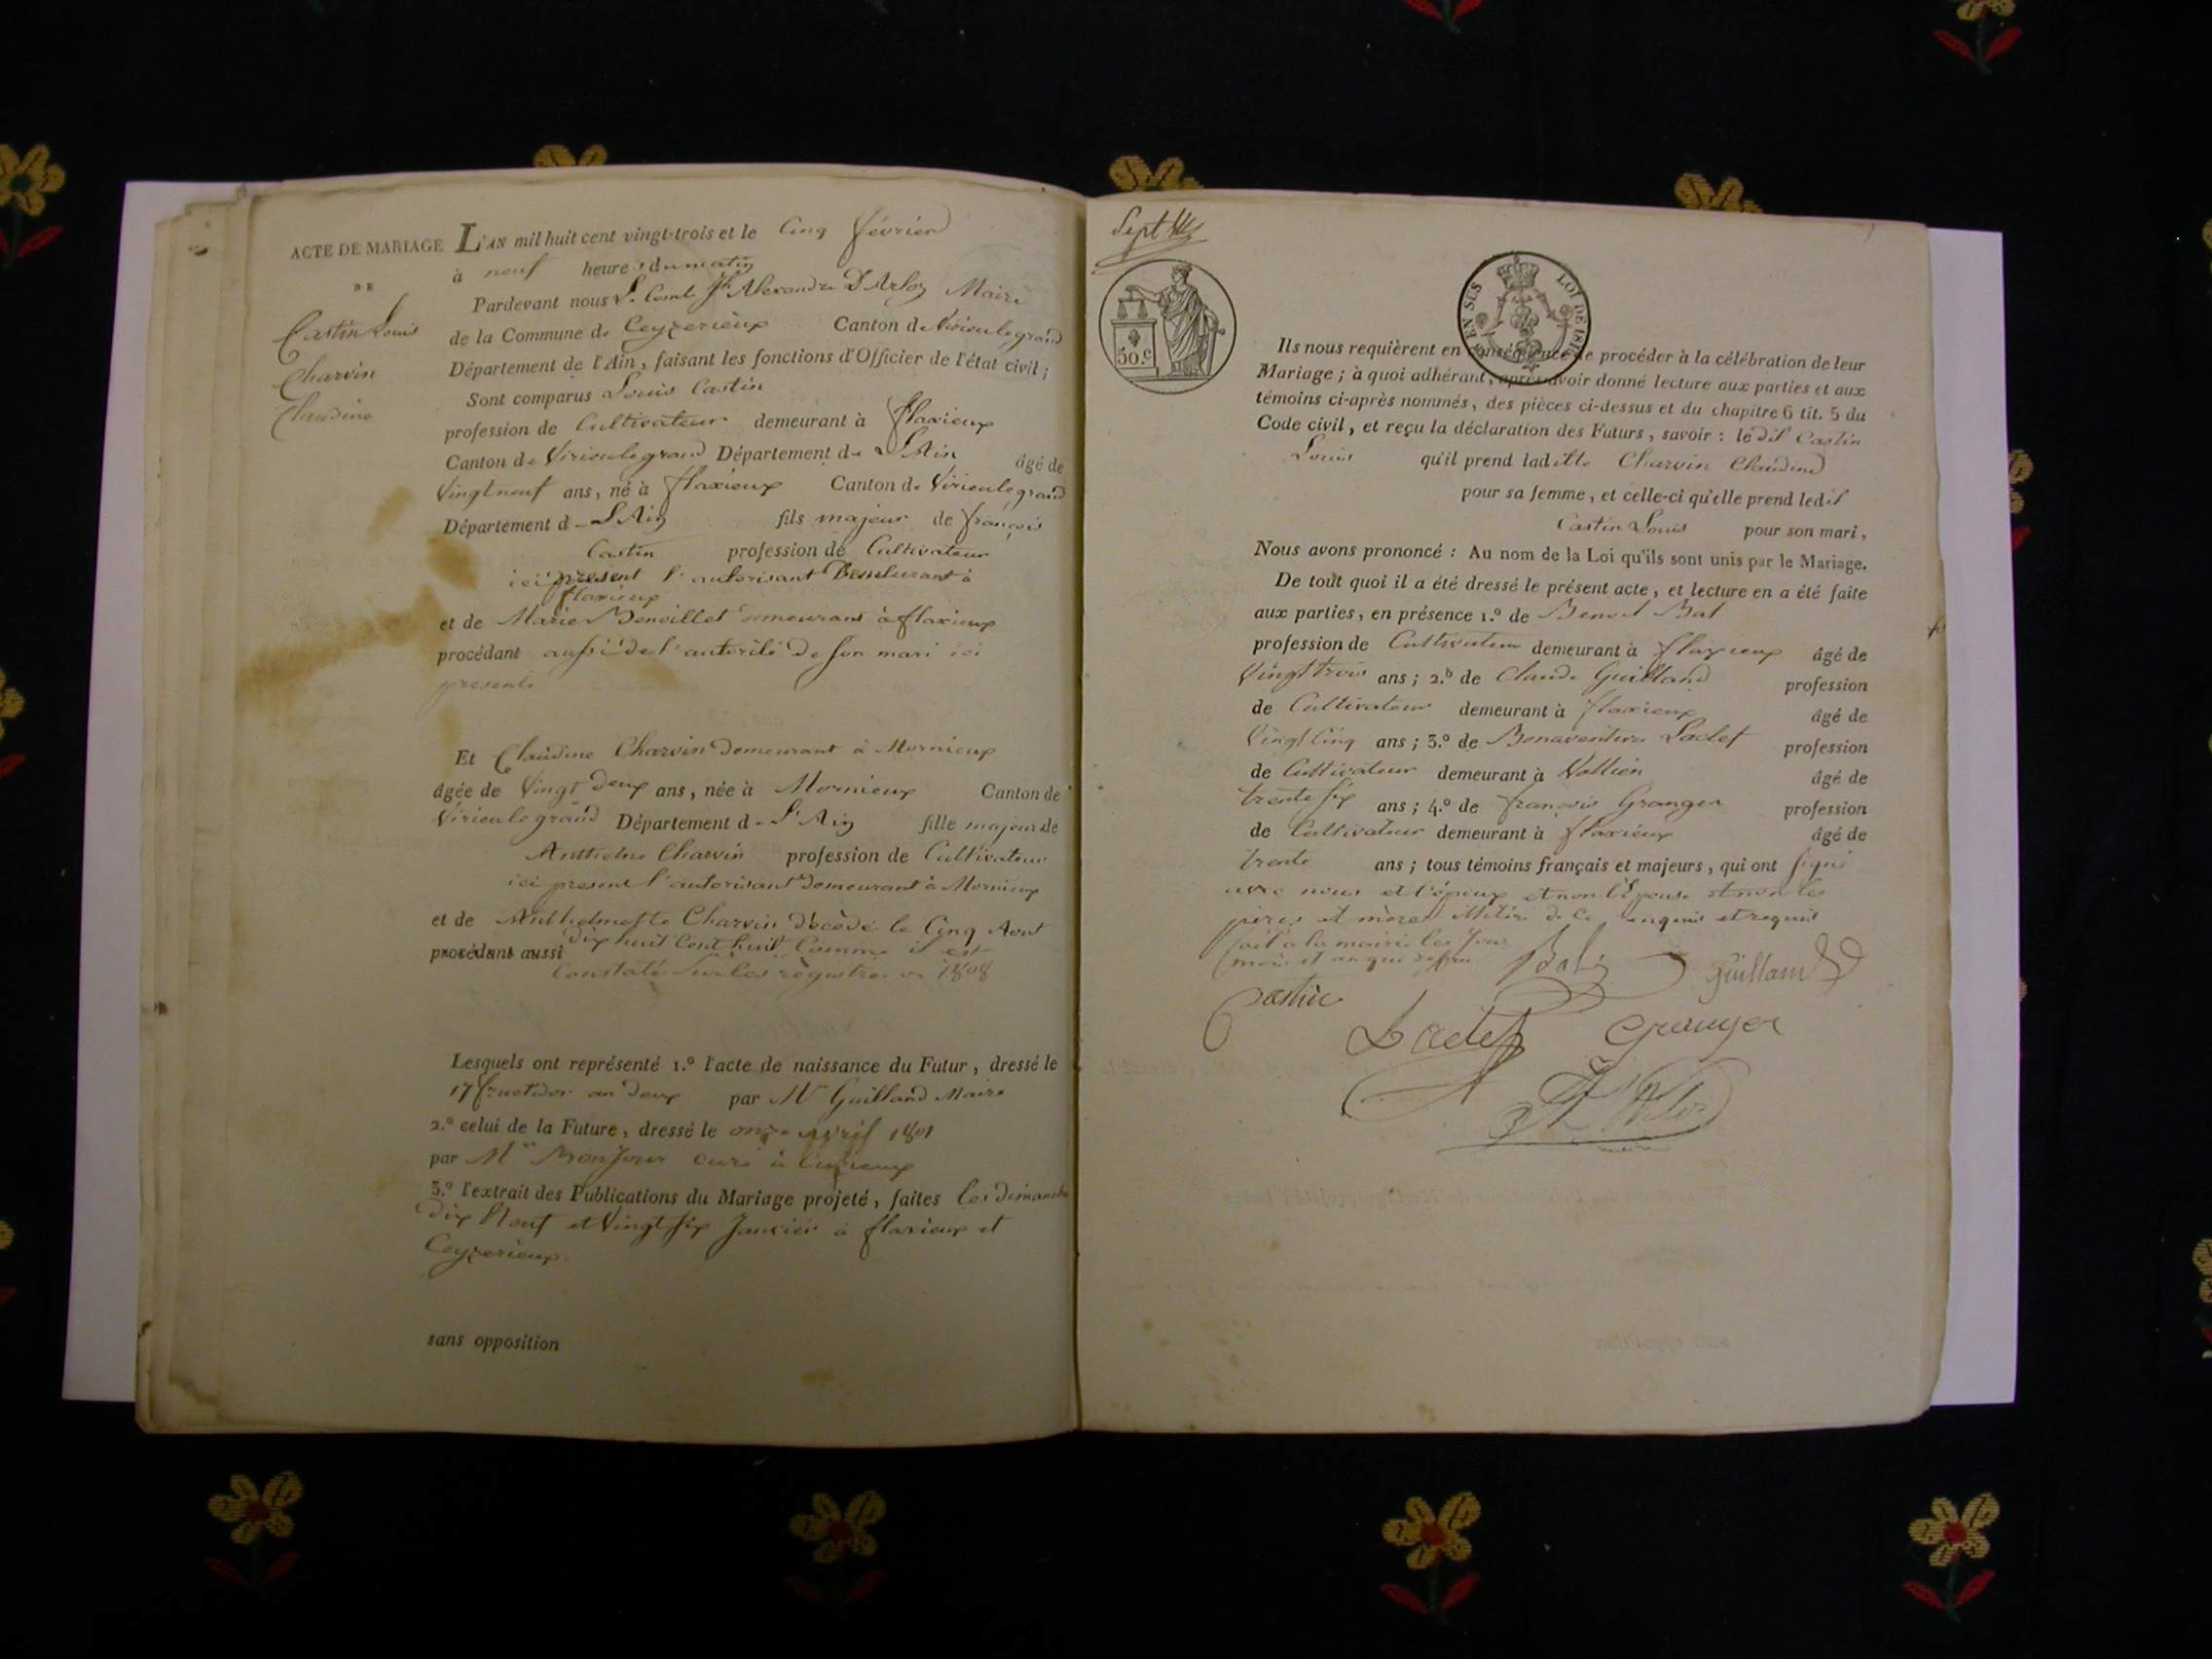 ACTE DE MARIAGE
DE
Castin Louis
Charvin
Claudine
L'AN mil huit cent vingt-trois et le Cinq février
à neuf heures du matin
Pardevant nous Le Comte Jh Alexandre D'Arloz Maire
de la Commune de Ceyzerieux Canton de Virieulegrand
Département de l'Ain, faisant les fonctions d'Officier de l'état civil;
Sont comparus Louis Castin
profession de Cultivateur demeurant à flaxieux
Canton de Virieulegrand Département de L'Ain âgé de
Vingt neuf ans, né à flaxieux Canton de Virieulegrand
Département d L'Ain fils majeur de françois
Castin profession de Cultivateur
ici present l'autorisant Demeurant à
flaxieux
et de Marie Benvillet demeurant à flaxieux
procédant aussi de l'autorité de son mari ici
presente
Et Claudine Charvin Demeurant à Mornieux
âgée de Vingt deux ans, née à Mornieux Canton de
Virieulegrand Département d L'Ain fille majeure de
Anthelme Charvin profession de Cultivateur
ici present l'autorisant Demeurant à Mornieux
et de Charvin décédé le Cinq Aout
procédant aussi dix huit Cent huit Comme il est
Constaté Sur les régistres en 1808
Lesquels ont représenté 1.º l'acte de naissance du Futur, dressé le
17 fructidor an deux par Mr Guilland Maire
2.º celui de la Future, dressé le onze avril 1801
par Mr Bonjour curé à Cuzieux
3.º l'extrait des Publications du Mariage projeté, faites les dimanche
dix Neuf et Vingt six Janvier à flaxieux et
Ceyzerieux.
sans opposition
Sept
50.c
EN SUS
LOI DE 1816
Ils nous requièrent en conséquence de procéder à la célébration de leur
Mariage; à quoi adhérant, après avoir donné lecture aux parties et aux
témoins ci-après nommés, des pièces ci-dessus et du chapitre 6 tit. 5 du
Code civil, et reçu la déclaration des Futurs, savoir: le dit Castin
Louis qu'il prend laditte Charvin Claudine
pour sa femme, et celle-ci qu'elle prend ledit
Castin Louis pour son mari,
Nous avons prononcé: Au nom de la Loi qu'ils sont unis par le Mariage.
De tout quoi il a été dressé le présent acte, et lecture en a été faite
aux parties, en présence 1.º de Benoit Bal
profession de Cultivateur demeurant à flaxieux âgé de
Vingt trois ans; 2.º de Claude Guilland profession
de Cultivateur demeurant à flaxieux âgé de
Vingt Cinq ans; 3.º de Bonaventure Laclef profession
de Cultivateur demeurant à Vollien âgé de
trente six ans; 4.º de françois Granger profession
de Cultivateur demeurant à flaxieux âgé de
trente ans; tous témoins français et majeurs, qui ont signé
avec nous et l'époux et non l'Epouse et non les
pères et mères de ce enquis et requis
fait à la mairie les Jour
mois et an que dessus
Guilland
Castin
Laclef Granger